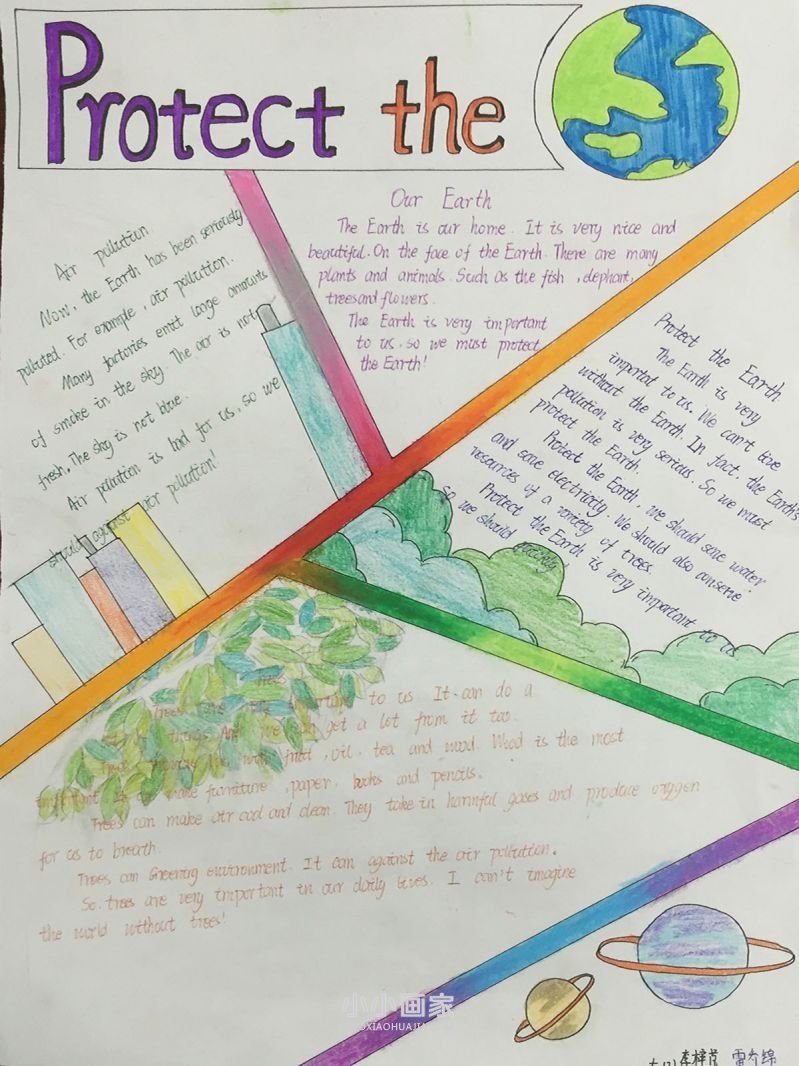 Protect the
Our Earth
The Earth is our home. It is very nice and
beautiful. On the face of the Earth. There are many
plants and animals. Such as the fish, elephant,
trees and flowers.
The Earth is very important
to us, so we must protect
the Earth!
Air pollution
Now, the Earth has been seriously
polluted. For example, air pollution.
Many factories emit large amounts
of smoke in the sky. The air is not
fresh. The sky is not blue.
Air pollution is bad for us, so we
should against air pollution!
Protect the Earth
The Earth is very
importat to us. We can't live
without the Earth. In fact, the Earth's
pollution is very serious. So we must
protect the Earth.
Protect the Earth, we should save water
and save electricity. We should also conserve
resources of a variety of trees
Protect the Earth is very important to us
so we should
to us. It can do a
get a lot from it too.
fruit, oil, tea and wood. Wood is the most
make furniture, paper, books and pencils.
Trees can make air cool and clean. They take in harmful gases and produce oxygen
for us to breath.
Trees can Greening environment. It can against the air pollution.
So: trees are very important in our daily lives. I can't imagine
the world without trees!
小小画家